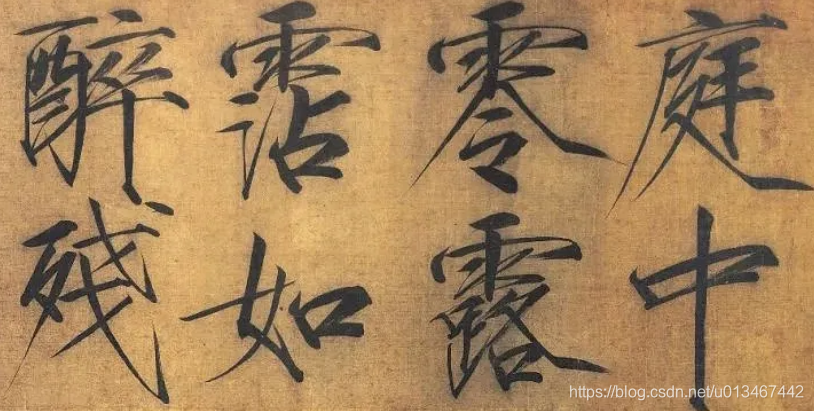 庭中
零露
霑如
醉殘
https://blog.csdn.net/u013467442